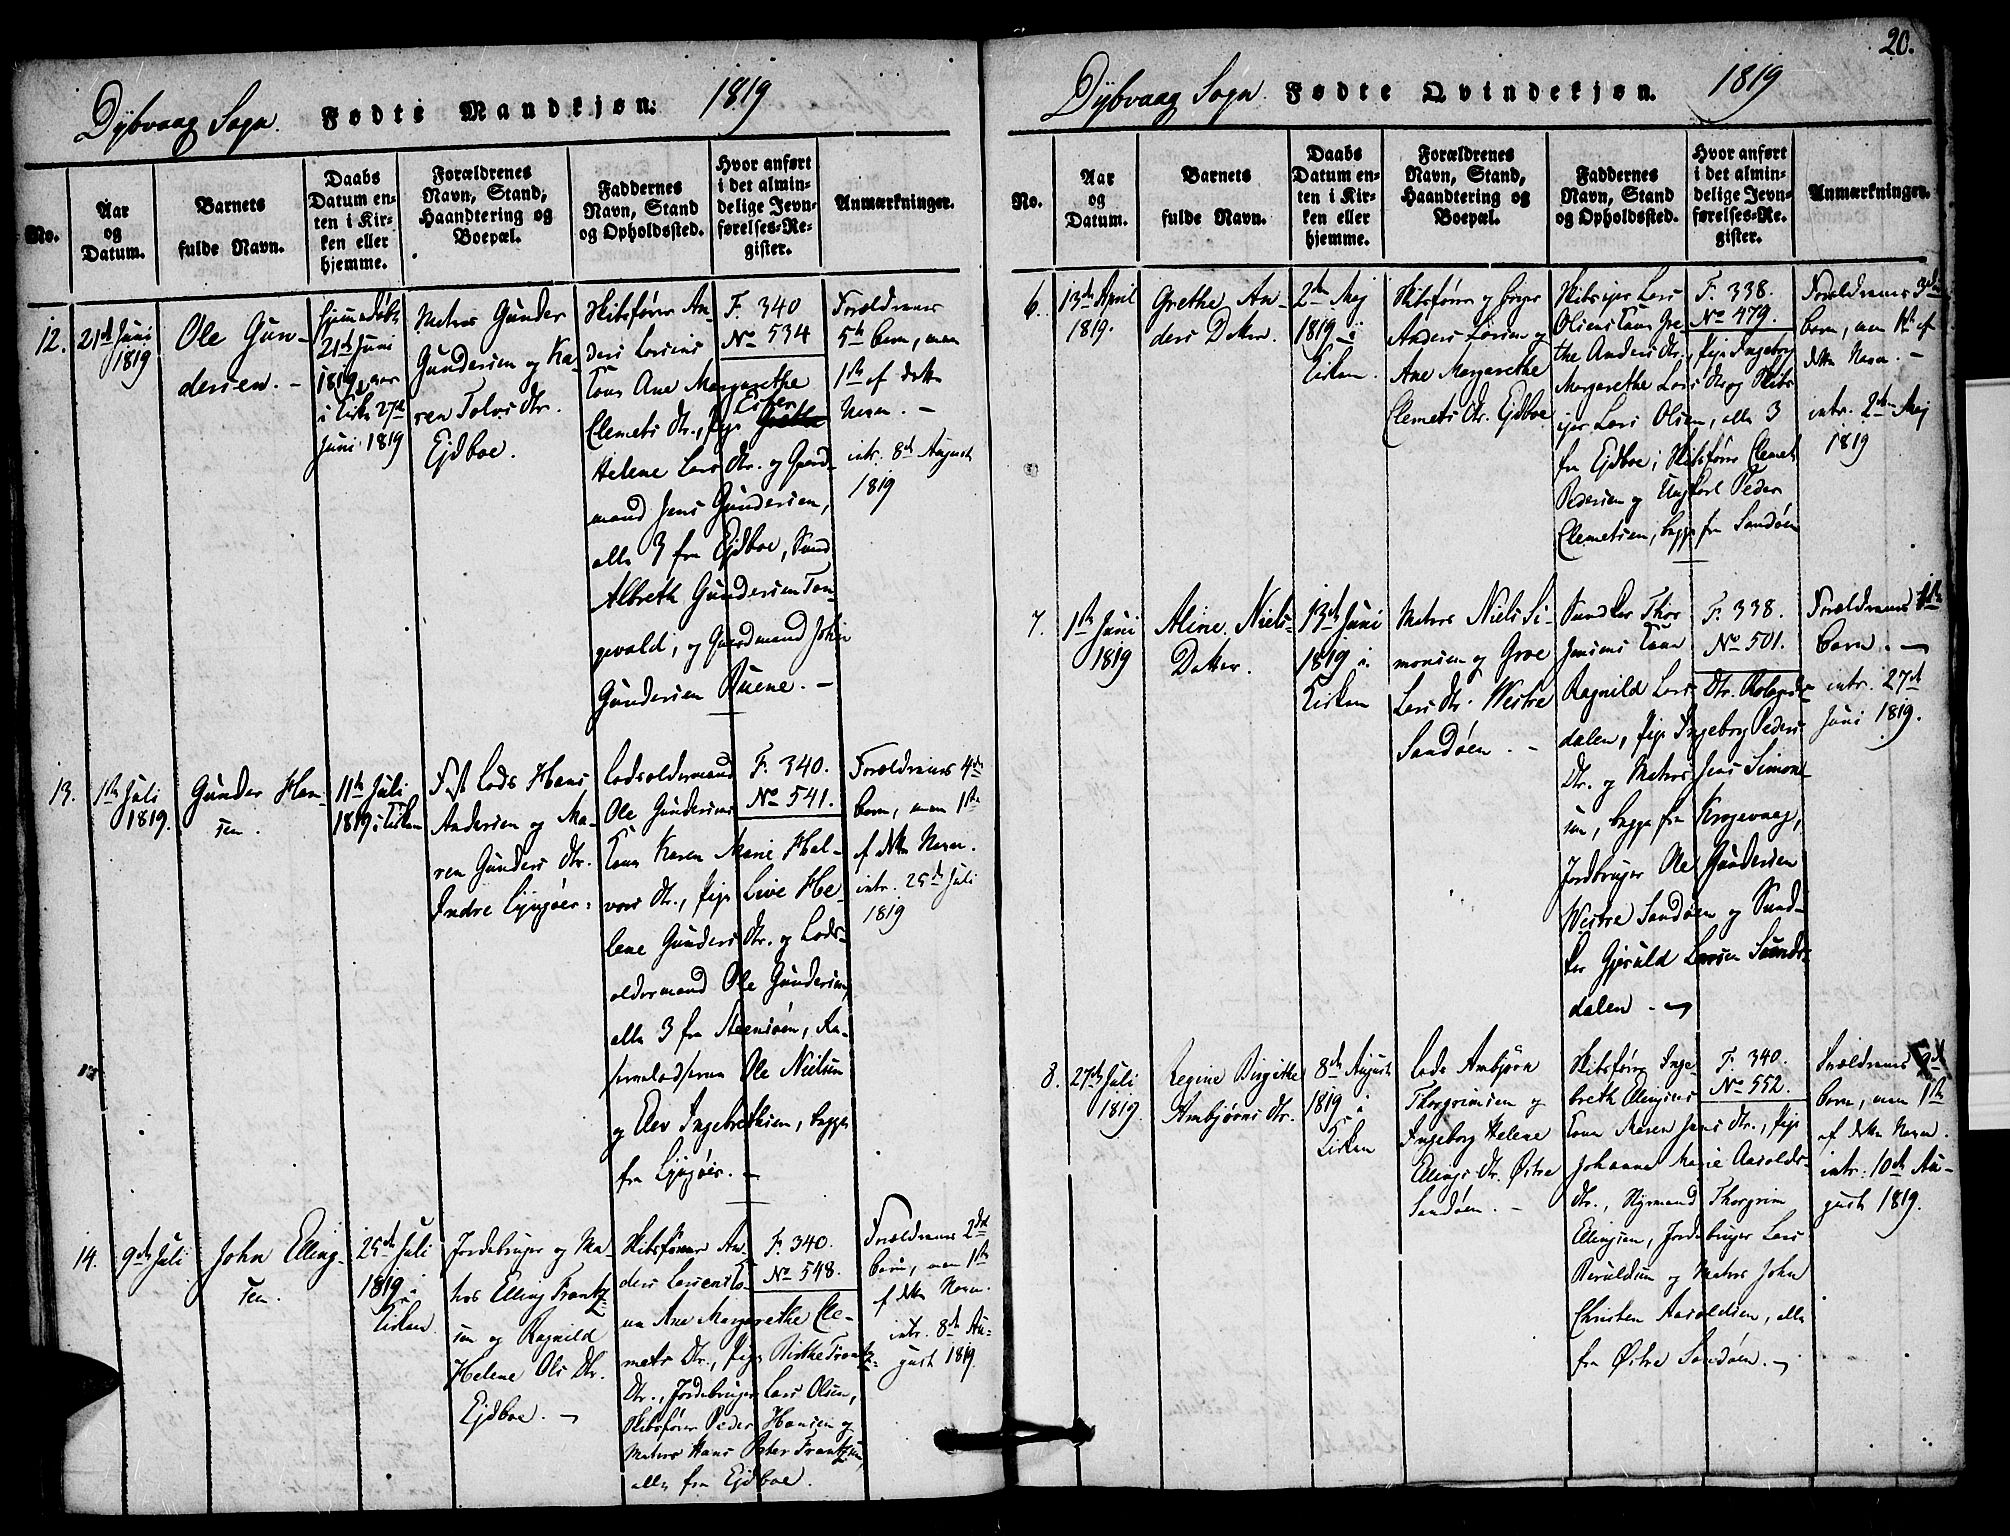 20.
Dybvaag Sogn. Fødte Mandkjøn: 1819
No.
Aar
og
Datum.
Barnets
fulde Navn.
Daabs
Datum en-
ten i Kir-
ken eller
hjemme.
Forældrenes
Navn, Stand,
Haandtering og
Boepæl.
Faddernes
Navn, Stand
og Opholdssted.
Hvor anført
i det almin-
delige Jevn-
førelses-Re-
gister.
Anmærkninger.
12.
21de Juni
1819
Ole Gun-
dersen. -
hjemmedøbt
21de Juni
1819,
i Kirke 27de
Juni 1819
Matros Gunder
Gundersen og Ka-
ren Tolvs Dtr.
Ejdboe.
Skibsfører An-
ders Larsens
Kone Ane Margrethe
Clemets Dtr., Pige Grethe
Helene Lars Dtr. og Gaard-
mand Jens Gundersen,
alle 3 fra Ejdboe,
Albreth Gundersen Tan-
gevald, og Gaardmand John
Gundersen Ruene. -
F. 340
No 534
Forældrenes
5te barn, men
1ste af dette
Navn. -
intr. 8de August
1819
13.
1ste Juli
1819.
Gunder Han-
sen.
11te Juli
1819 i Kirken
Fast Lods Hans
Andersen og Ma-
ren Gunders Dtr.
Indre Lyngöer.
Lodsoldermand
Ole Gundersens
Kone Karen Marie Hal-
vors Dtr., Pige Live He-
lene Gunders Dtr. og Lods-
oldermand Ole Gundersen,
alle 3 fra Steensöen,
Ole Nielsen
og Elev Ingebrethsen, begge
fra Lyngöer. -
F. 340.
No 541.
Forældrenes 4de
barn, men 1ste
af dette Navn.
intr. 25de Juli
1819
14.
9de Juli
John Elling-
sen.
25de Juli
1819 i
Kirken
Jordebruger og Ma-
tros Elling Frantz-
sen og Ragnild
Helene Ols Dtr.
Ejdboe. -
Skibsfører An-
ders Larsens Ko-
ne Ane Margrethe Cle-
mets Dtr., Pige Birthe Frantz-
Dtr., Jordebruger Lars Olsen,
Skibsfører Peder Hansen og
Matros Hans Peter Frantzsen,
alle fra Ejdboe.
F. 340.
No 548.
Forældrenes 2det
barn, men 1ste
af dette Navn.
intr. 8de Au-
gust 1819.
Dybvaag Sogn. Fødte Qvindekjøn. 1819
No.
Aar
og
Datum.
Barnets
fulde Navn.
Daabs
Datum en-
ten i Kir-
ken eller
hjemme.
Forældrenes
Navn, Stand,
Haandtering og
Boepæl.
Faddernes
Navn, Stand
og Opholdssted.
Hvor anført
i det almin-
delige Jevn-
førelses-Re-
gister.
Anmærkninger.
6.
13de April
1819.
Grethe An-
ders Datter.
2den Maj
1819 i
Kirken.
Skibsfører og
Anders Larsen og
Ane Margrethe
Clemets Dtr. Ejdboe
Skibsejer Lars
Olsens Kone Gre-
the Anders Dtr., Pige Ingeborg
Margrethe Lars Dtr. og Skibs-
ejer Lars Olsen, alle 3
fra Ejdboe; Skibsfører Clemet
Pedersen og Ungkarl Peder
Clemetsen, begge fra Sandöen
F. 338.
No 479.
Forældrenes 3die
barn, men 1ste af
dette Navn. -
intr. 2den Maj
1819
7.
1ste Juni
1819
Aline Niels-
Datter.
13de Juni
1819 i
Kirken
Matros Niels Si-
monsen og Groe
Lars Dtr. Westre
Sandöen. -
Thor
Jensens Kone
Ragnild Lars Dtr.
dalen, Pige Ingeborg Peders
Dtr. og Matros Jens Simon-
sen, begge fra Krogevaag,
Jordbruger Ole Gundersen
Westre Sandöen og
Gjeruld Larsen Sunds-
dalen. -
F. 338.
No 501.
Forældrenes 1ste
barn. -
intr. 27de
Juni 1819.
8.
27de Juli
1819.
Regine Birgithe
Ambjørns Dtr.
8de August
1819 i
Kirken
Lods Ambjørn
Thorgrimsen og
Ingeborg Helene
Ellings Dtr. Östre
Sandöen. -
Skibsfører Inge-
breth Ellingsens
Kone Maren Jens Dtr., Pige
Johanne Marie Aarolds-
Dtr., Styrmand Thorgrim
Ellingsen, Jordebruger Lars
og Matros John
Christen Aaroldsen, alle
fra Östre Sandöen. -
F. 340.
No 552.
Forældrenes
barn, men 1ste
af dette Navn.
intr. 10de Au-
gust 1819.